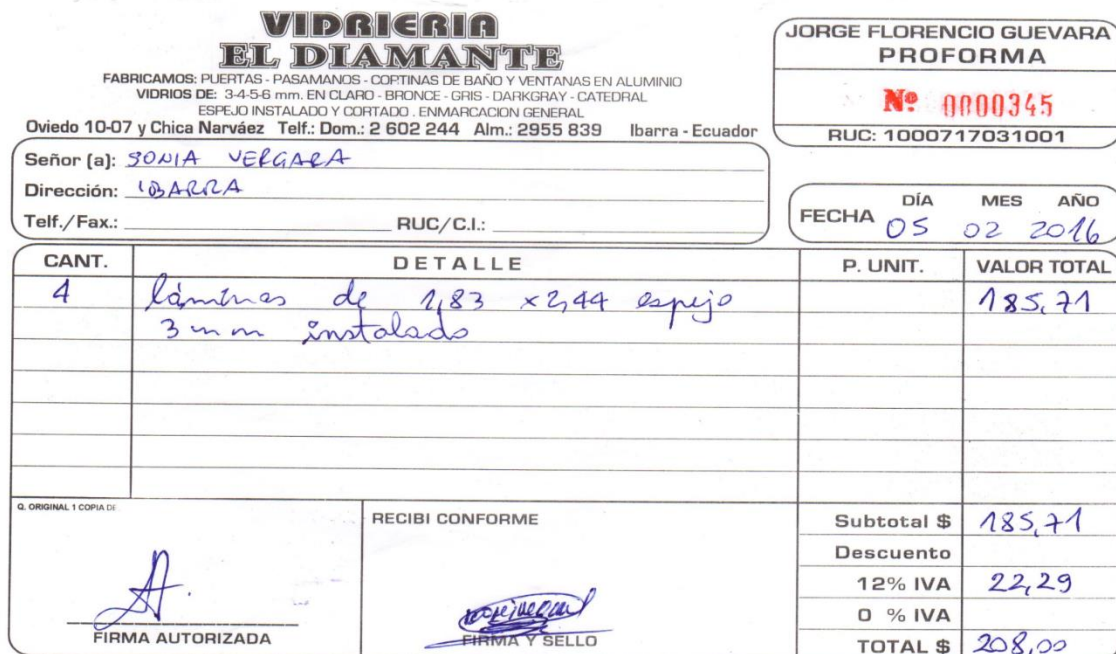 VIDRIERIA
EL DIAMANTE
FABRICAMOS: PUERTAS - PASAMANOS - CORTINAS DE BAÑO Y VENTANAS EN ALUMINIO
VIDRIOS DE: 3-4-5-6 mm. EN CLARO - BRONCE - GRIS - DARKGRAY - CATEDRAL
ESPEJO INSTALADO Y CORTADO . ENMARCACION GENERAL
Oviedo 10-07 y Chica Narváez Telf.: Dom.: 2 602 244 Alm.: 2955 839 Ibarra - Ecuador
JORGE FLORENCIO GUEVARA
PROFORMA
Nº 0000345
RUC: 1000717031001
Señor (a): SONIA VERGARA
Dirección: IBARRA
Telf./Fax.: RUC/C.I.:
FECHA DÍA MES AÑO
05 02 2016
CANT. DETALLE P. UNIT. VALOR TOTAL
4 láminas de 1,83 x 2,44 espejo 185,71
3 mm instalado
Q. ORIGINAL 1 COPIA DE
RECIBI CONFORME
FIRMA AUTORIZADA
FIRMA Y SELLO
Subtotal $ 185,71
Descuento
12% IVA 22,29
0 % IVA
TOTAL $ 208,00